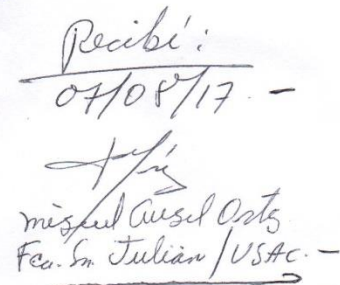 Recibí:
07/08/17.-
Miguel Angel Ortiz
Fca. Sn. Julián / USAC.-